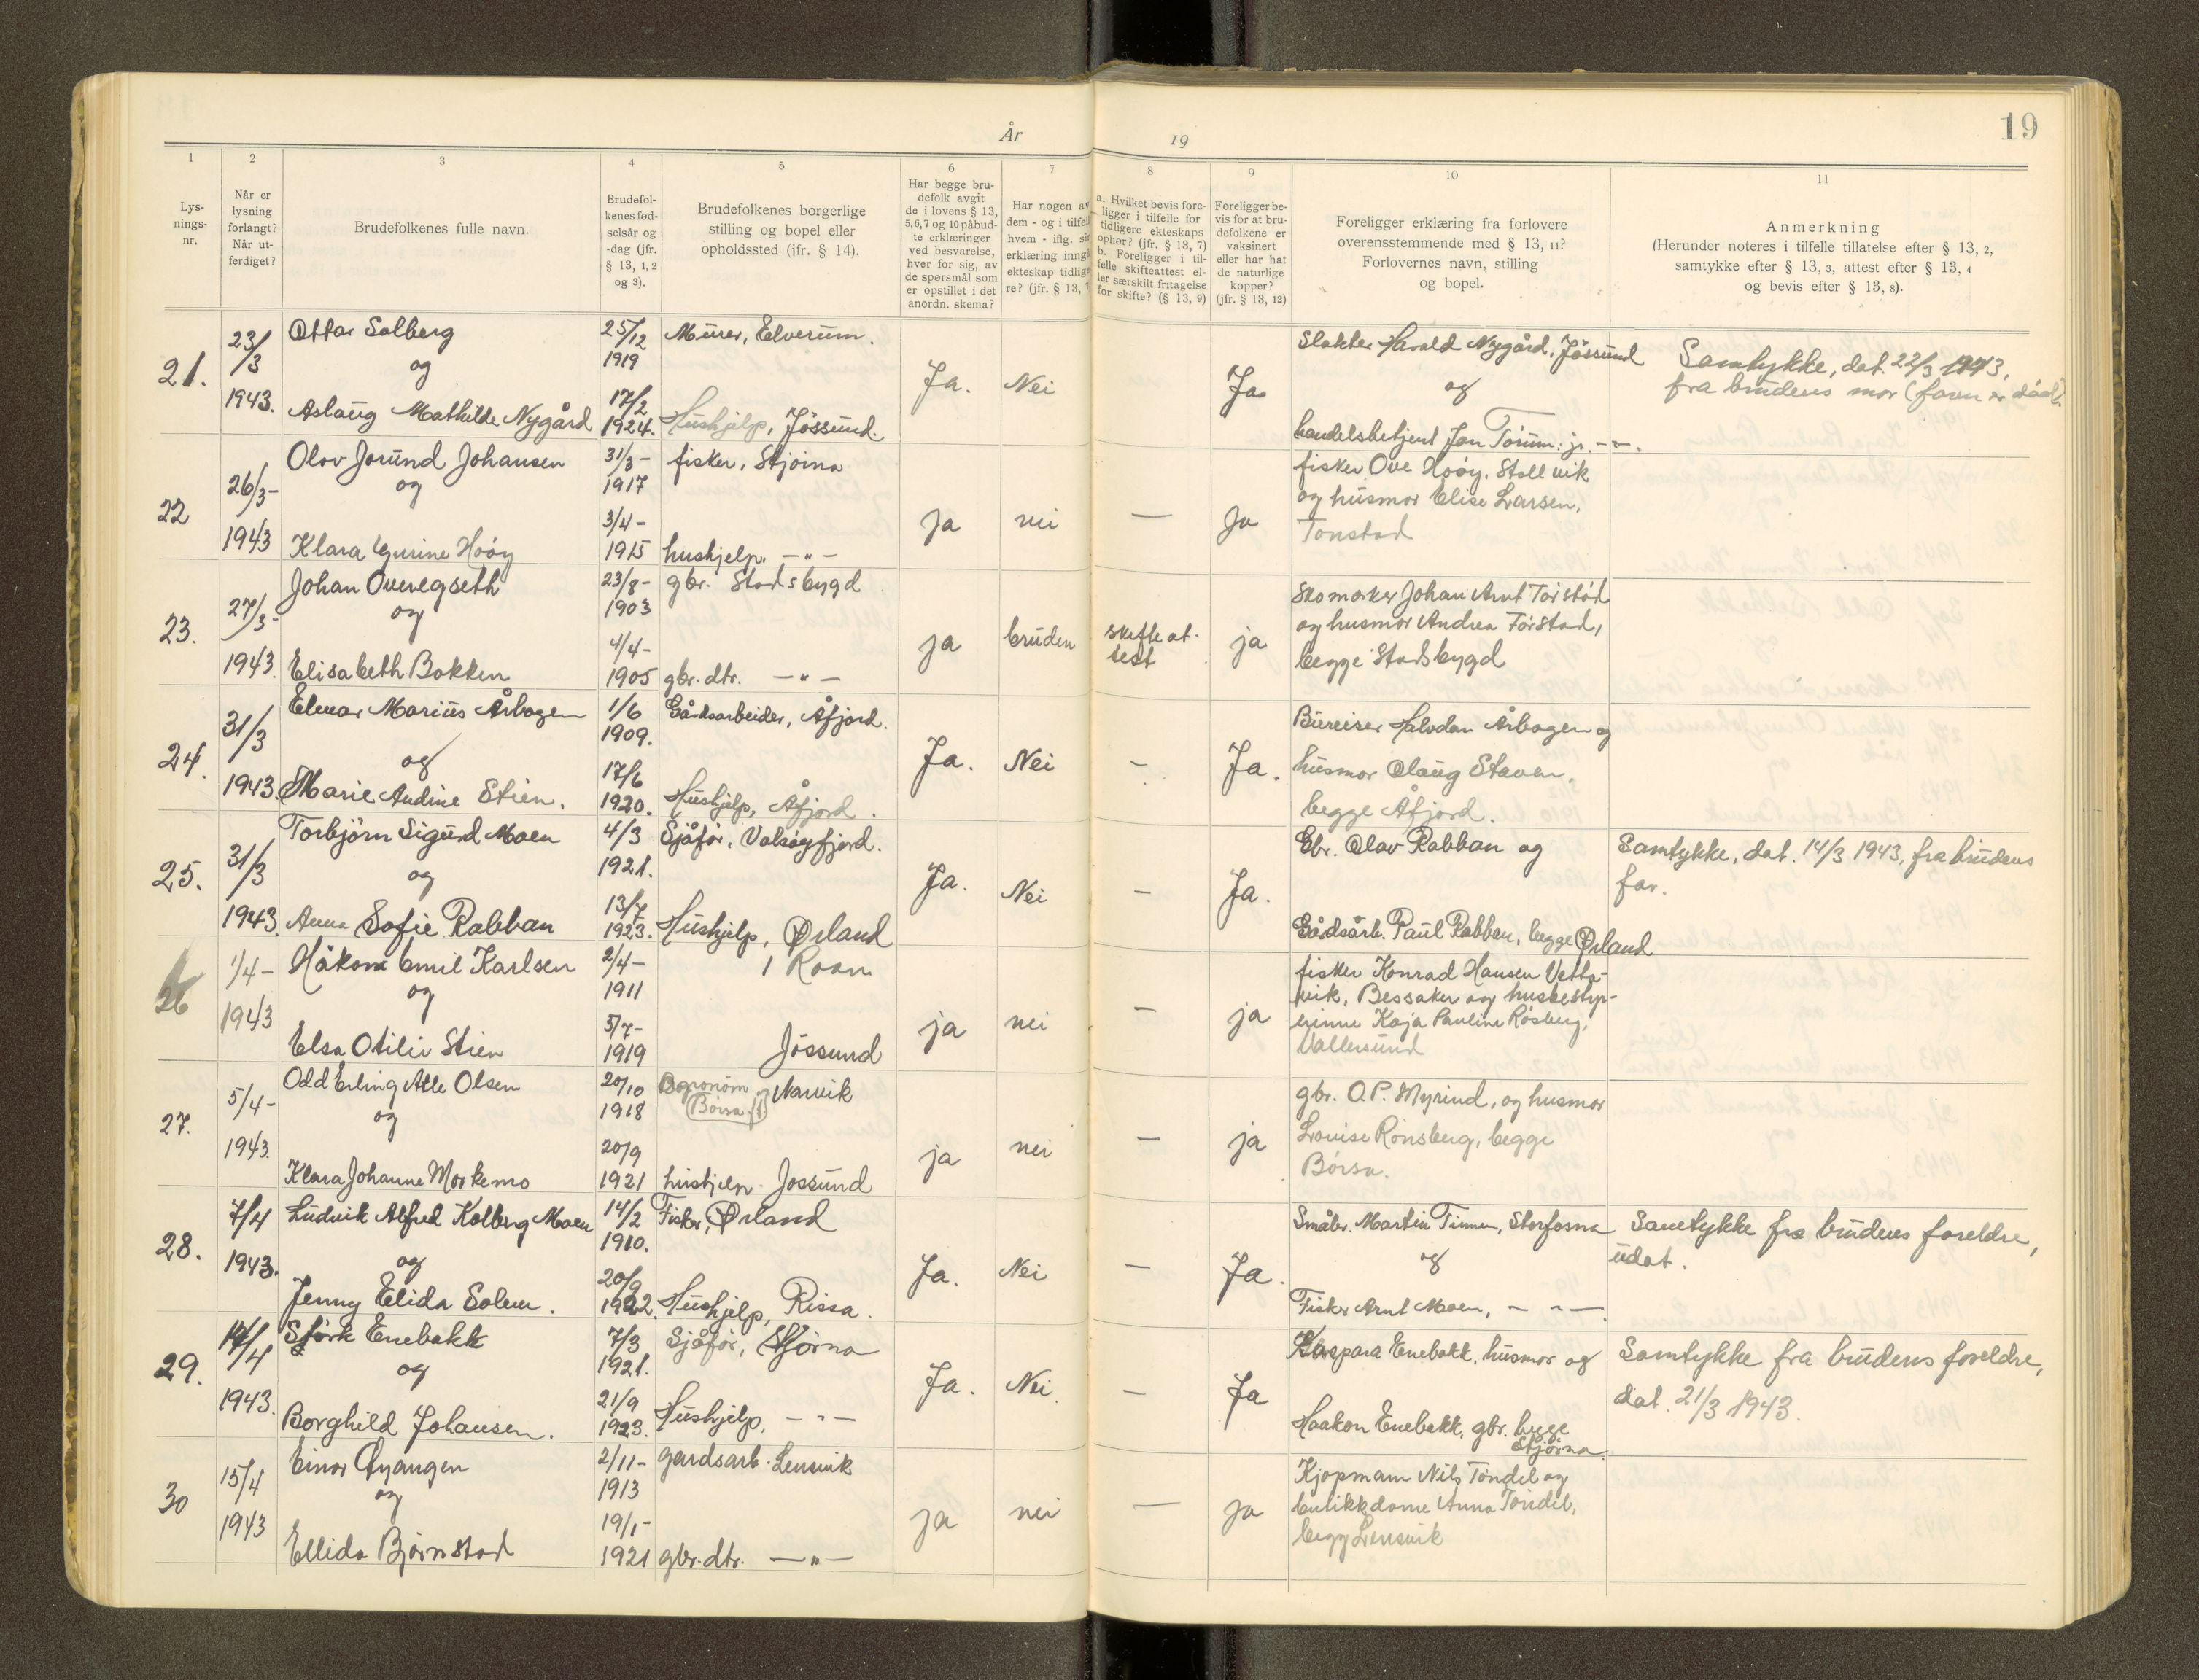 År 19
19
1 2 3 4 5 6 7 8 9 10 11
Lys-
nings-
nr.
Når er
lysning
forlangt?
Når ut-
ferdiget?
Brudefolkenes fulle navn.
Brudefol-
kenes fød-
selsår og
-dag (jfr.
§ 13, 1, 2
og 3).
Brudefolkenes borgerlige
stilling og bopel eller
opholdssted (ifr. § 14).
Har begge bru-
defolk avgit
de i lovens § 13,
5,6,7 og 10 påbud-
te erklæringer
ved besvarelse,
hver for sig, av
de spørsmål som
er opstillet i det
anordn. skema?
Har nogen av
dem - og i tilfel
hvem - iflg. sin
erklæring inngå
ekteskap tidlige
re? (jfr. § 13, 7
a. Hvilket bevis fore-
ligger i tilfelle for
tidligere ekteskaps
ophør? (jfr. § 13, 7)
b. Foreligger i til-
felle skifteattest el-
ler særskilt fritagelse
for skifte? (§ 13, 9)
Foreligger be-
vis for at bru-
defolkene er
vaksinert
eller har hat
de naturlige
kopper?
(jfr. § 13, 12)
Foreligger erklæring fra forlovere
overensstemmende med § 13, 11?
Forlovernes navn, stilling
og bopel.
Anmerkning
(Herunder noteres i tilfelle tillatelse efter § 13, 2,
samtykke efter § 13, 3, attest efter § 13, 4
og bevis efter § 13, 8).
21.
23/3
1943.
Ottar Solberg
og
Aslaug Mathilde Nygård
25/12
1919
17/2
1924.
Murer, Elverum.
Hushjelp, Jössund.
Ja.
Nei
Ja
Slakter Harald Nygård, Jössund
og
handelsbetjent Jon Torum. jr. -"-.
Samtykke, dat. 22/3 1943,
fra brudens mor (faren er död).
22
26/3-
1943
Olav Jorund Johansen
og
Klara Gurine Hoøy
31/3-
1917
3/4-
1915
fisker, Stjørna
hushjelp. -"-
ja
nei
—
ja
fisker Ove Hoøy, Stallvik
og husmor Elise Larsen,
Tonstad
23.
27/3-
1943.
Johan Overegseth
og
Elisabeth Bakken
23/8-
1903
4/4-
1905
gbr. Stadsbygd
gbr.dtr. -"-
ja
bruden
skifteat-
test
ja
skomaker Johan Arnt Førstad
og husmor Andrea Førstad,
begge Stadsbygd
24.
31/3
1943.
Elmar Marius Årbogen
og
Marie Audine Stien.
1/6
1909.
17/6
1920.
Gårdsarbeider, Åfjord.
Hushjelp, Åfjord.
Ja.
Nei
-
Ja.
Bureiser Halvdan Årbogen og
husmor Olaug Staven,
begge Åfjord.
25.
31/3
1943.
Torbjörn Sigurd Moen
og
Anna Sofie Rabban
4/3
1921.
13/7
1923.
Sjåfør, Valsøyfjord.
Hushjelp, Ørland
Ja.
Nei
-
Ja.
Gbr. Olav Rabban og
Gårdsarb. Paul Rabban, begge Ørland
Samtykke, dat. 14/3 1943, fra brudens
far.
26
1/4-
1943
Håkon Emil Karlsen
og
Elsa Otilie Stien
2/4-
1911
5/7-
1919
Roan
Jössund
ja
nei
-
ja
fisker Konrad Hansen Vetta-
vik, Bessaker og husbestyr-
erinne Kaja Pauline Røsberg,
Vallersund
27.
5/4-
1943.
Odd Erling Atle Olsen
og
Klara Johanne Morkemo
20/10
1918
20/9
1921
Agronom Narvik
Børsa
hushjelp. Jossund
ja
nei
—
ja
gbr. O.P. Myrind, og husmor
Lovise Rønsberg, begge
Børsa.
28.
7/4
1943.
Ludvik Alfred Kolberg Moen
og
Jenny Elida Solem.
14/2
1910.
20/9
1922.
Fisker, Ørland
Hushjelp, Rissa.
Ja.
Nei
-
Ja.
Småbr. Martin Tinnen, Storfosna
og
Fisker Arnt Moen, - " -
Samtykke fra brudens foreldre,
udat.
29.
14/4
1943.
Størk Enebakk
og
Borghild Johansen.
7/3
1921.
21/9
1923.
Sjåfør, Stjørna
Hushjelp, -"-
Ja.
Nei.
-
Ja
Kaspara Enebakk, husmor og
Haakon Enebakk, gbr. begge
Stjørna
Samtykke fra brudens foreldre,
dat. 21/3 1943.
30
15/4
1943
Einar Øyangen
og
Ellida Bjørnstad
2/11-
1913
19/1-
1921
gardsarb. Lensvik
gbr.dtr. -"-
ja
nei
—
ja
Kjøpmann Nils Tøndel og
butikkdame Anna Tøndel,
begge Lensvik